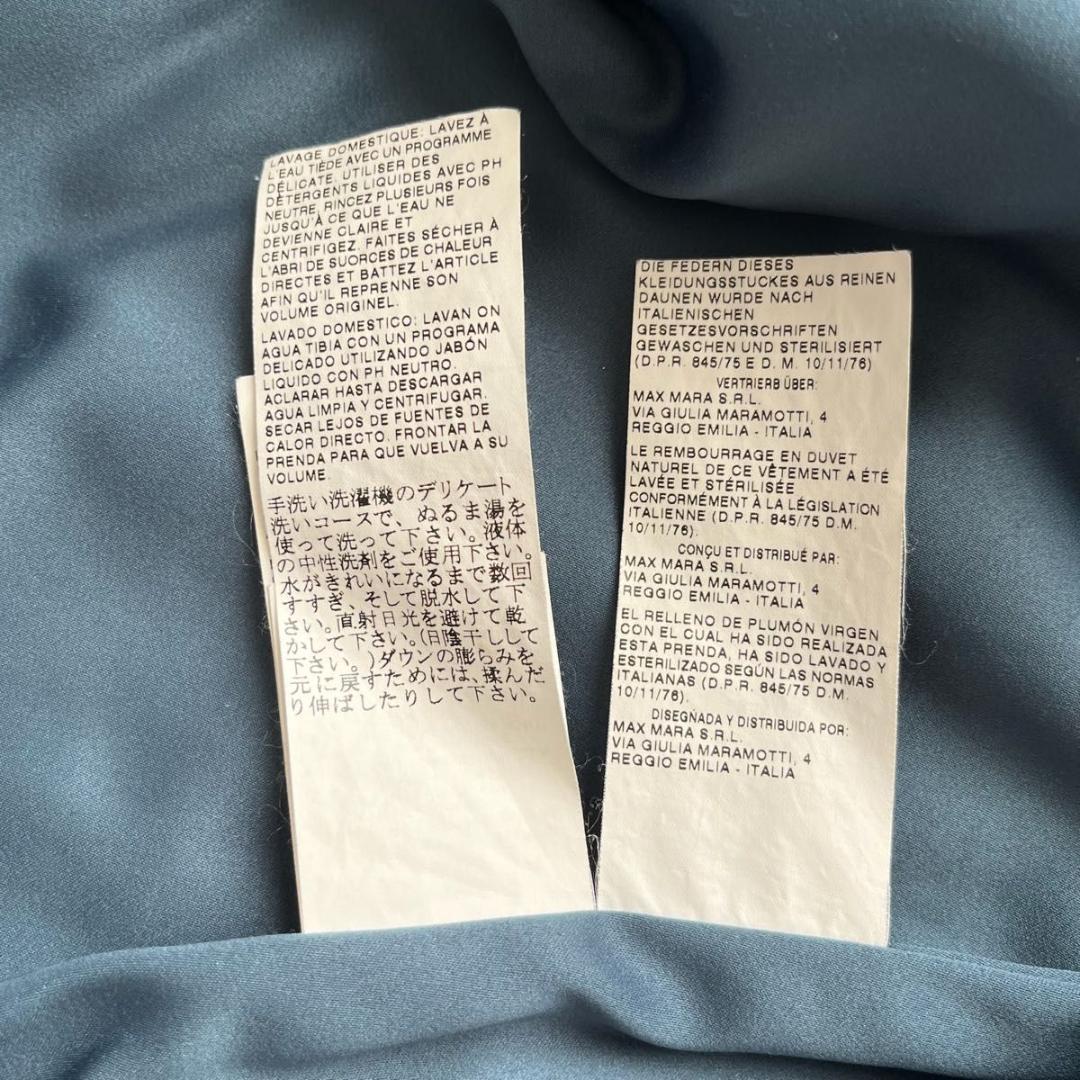 LAVAGE DOMESTIQUE: LAVEZ À
L'EAU TIÈDE AVEC UN PROGRAMME
DÉLICATE. UTILISER DES
DÉTERGENTS LIQUIDES AVEC PH
NEUTRE, RINCEZ PLUSIEURS FOIS
JUSQU'À CE QUE L'EAU NE
DEVIENNE CLAIRE ET
CENTRIFIGEZ. FAITES SÉCHER À
L'ABRI DE SUORCES DE CHALEUR
DIRECTES ET BATTEZ L'ARTICLE
AFIN QU'IL REPRENNE SON
VOLUME ORIGINEL.
LAVADO DOMESTICO: LAVAN ON
AGUA TIBIA CON UN PROGRAMA
DELICADO UTILIZANDO JABÓN
LIQUIDO CON PH NEUTRO.
ACLARAR HASTA DESCARGAR
AGUA LIMPIA Y CENTRIFUGAR.
SECAR LEJOS DE FUENTES DE
CALOR DIRECTO. FRONTAR LA
PRENDA PARA QUE VUELVA A SU
VOLUME.
手洗い洗濯機のデリケート
洗いコースで、ぬるま湯を
使って洗って下さい。液体
の中性洗剤をご使用下さい。
水がきれいになるまで数回
すすぎ、そして脱水して下
さい。直射日光を避けて乾
かして下さい。(日陰干しして
下さい。)ダウンの膨らみを
元に戻すためには、揉んだ
り伸ばしたりして下さい。
DIE FEDERN DIESES
KLEIDUNGSSTUCKES AUS REINEN
DAUNEN WURDE NACH
ITALIENISCHEN
GESETZESVORSCHRIFTEN
GEWASCHEN UND STERILISIERT
(D.P.R. 845/75 E D. M. 10/11/76)
VERTRIERB ÜBER:
MAX MARA S.R.L.
VIA GIULIA MARAMOTTI, 4
REGGIO EMILIA - ITALIA
LE REMBOURRAGE EN DUVET
NATUREL DE CE VÊTEMENT A ÉTÉ
LAVÉE ET STÉRILISÉE
CONFORMÉMENT À LA LÉGISLATION
ITALIENNE (D.P.R. 845/75 D.M.
10/11/76).
CONÇU ET DISTRIBUÉ PAR:
MAX MARA S.R.L.
VIA GIULIA MARAMOTTI, 4
REGGIO EMILIA - ITALIA
EL RELLENO DE PLUMÓN VIRGEN
CON EL CUAL HA SIDO REALIZADA
ESTA PRENDA, HA SIDO LAVADO Y
ESTERILIZADO SEGÚN LAS NORMAS
ITALIANAS (D.P.R. 845/75 D.M.
10/11/76).
DISEGÑADA Y DISTRIBUIDA POR:
MAX MARA S.R.L.
VIA GIULIA MARAMOTTI, 4
REGGIO EMILIA - ITALIA